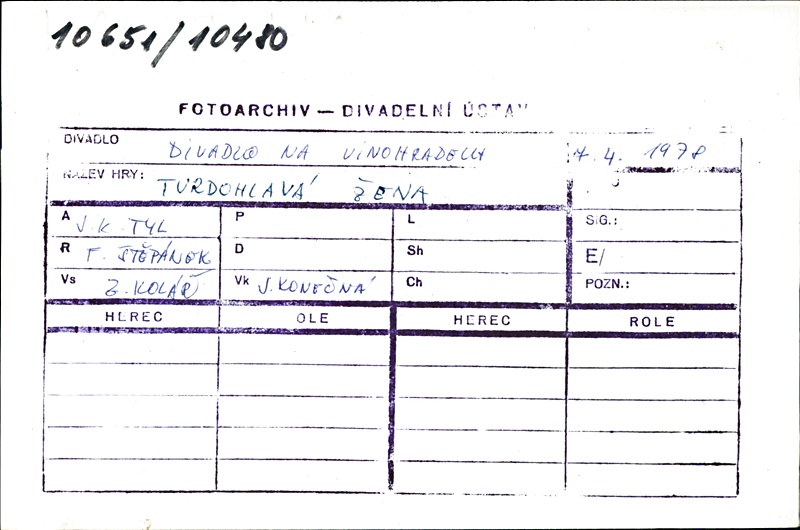 10651/10480
FOTOARCHIV — DIVADELNÍ ÚSTAV
DIVADLO DIVADLO NA VINOHRADECH 7. 4. 1978
NÁZEV HRY: TVRDOHLAVÁ ŽENA
A J. K. TYL P L SIG.:
R F. ŠTĚPÁNEK D Sh E/
Vs Z. KOLÁŘ Vk J. KONEČNÁ Ch POZN.:
HEREC OLE HEREC ROLE